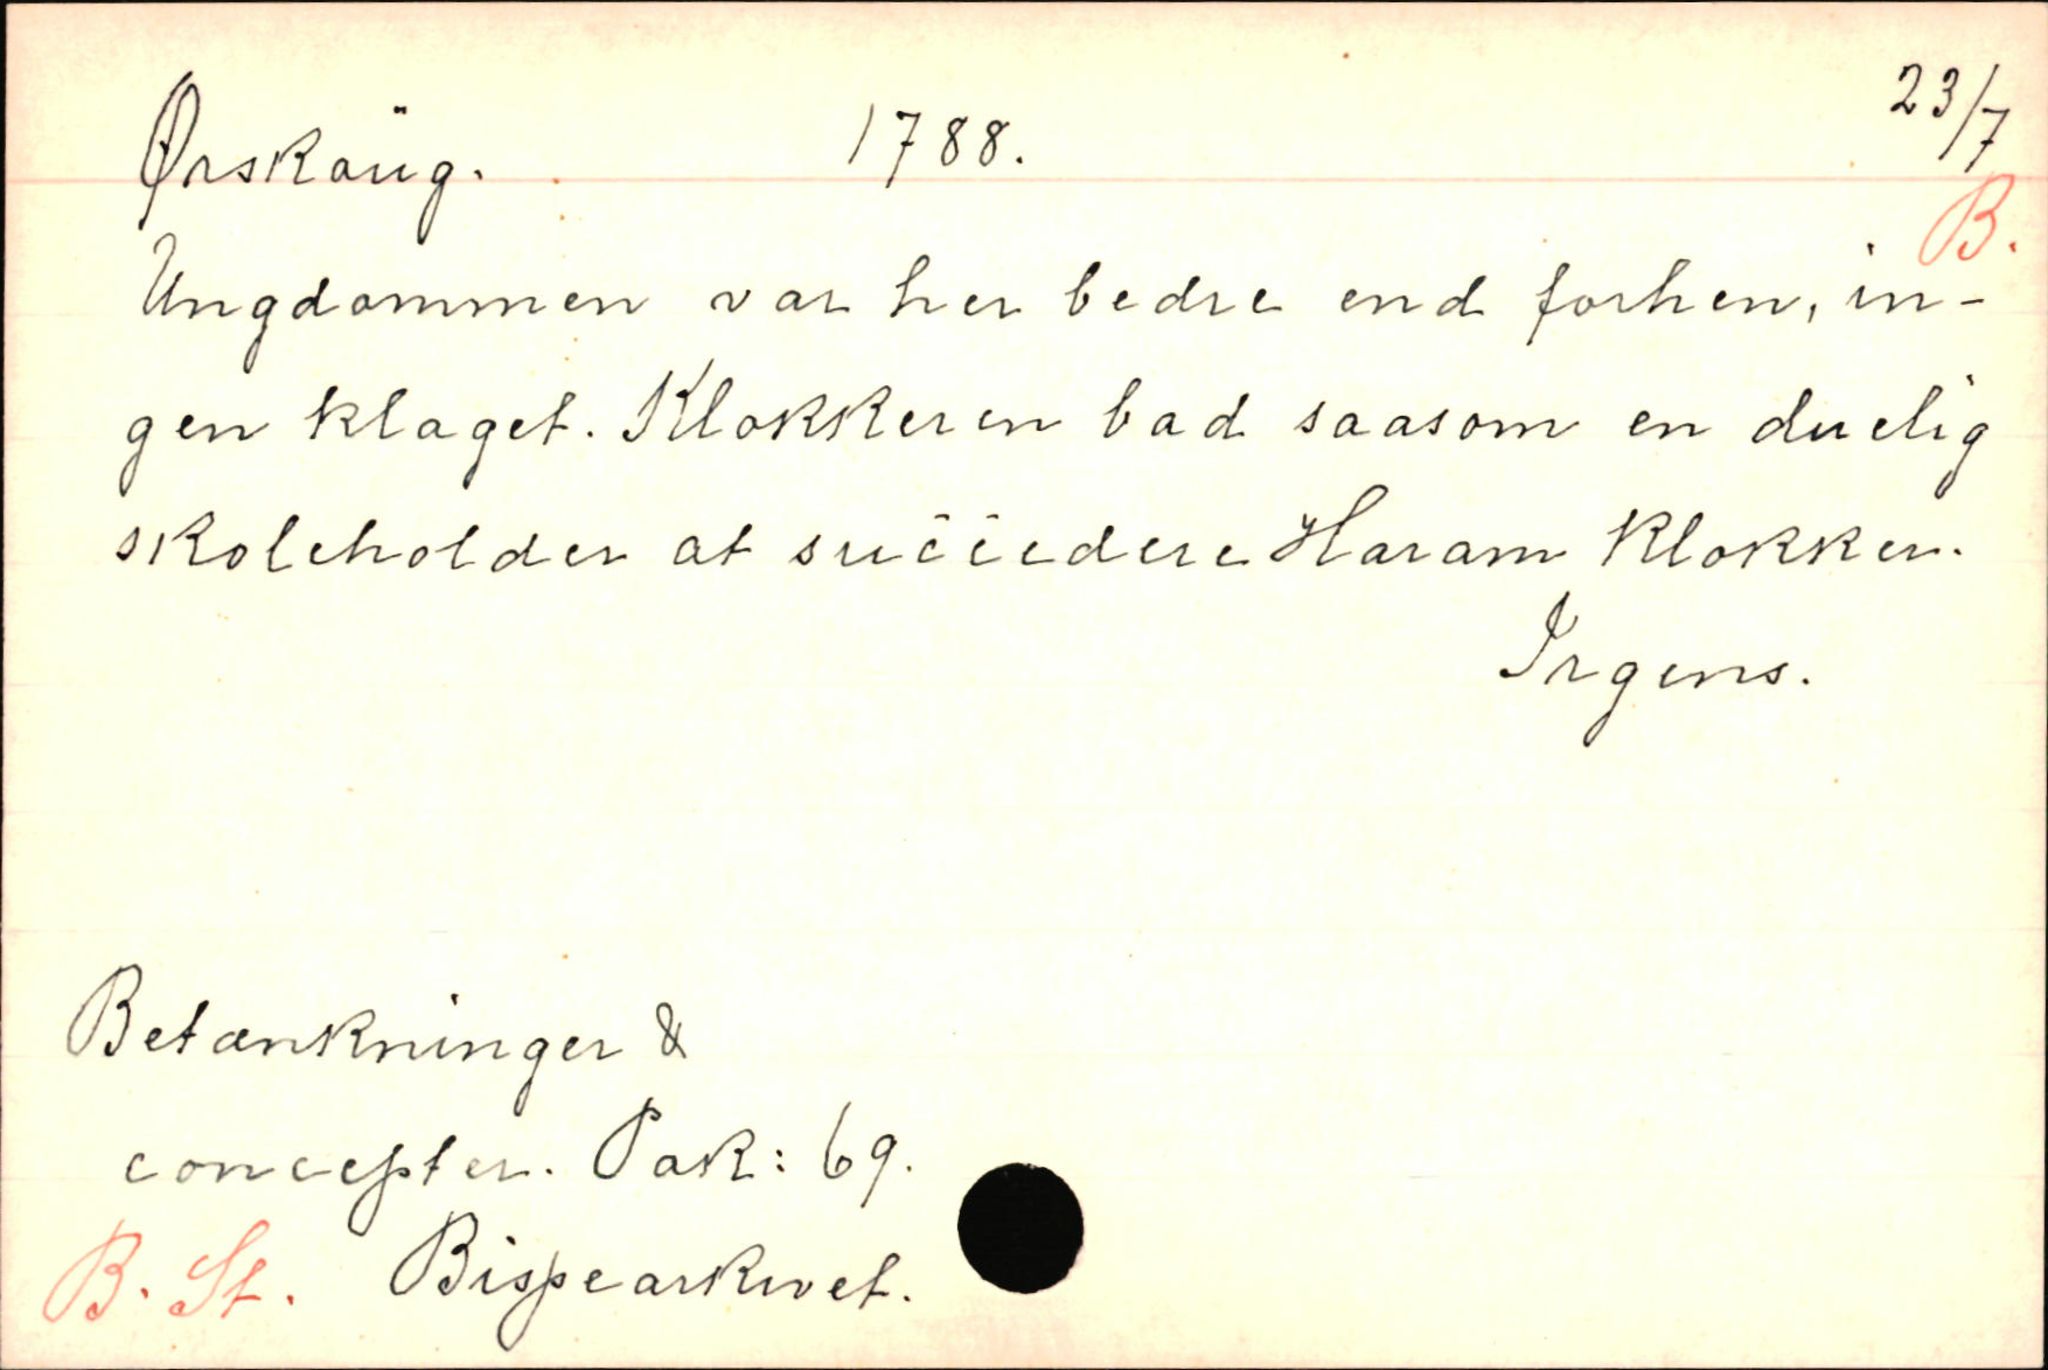 Ørskoüg. 1788. 23/7
B.
Ungdommen var her bedre end forhen, in-
gen klaget. Klokkeren bad saasom en duelig
skoleholder at succedere Haram klokker.
Irgens.
Betænkninger &
concepter. Pak: 69.
B. St. Bispearkivet.